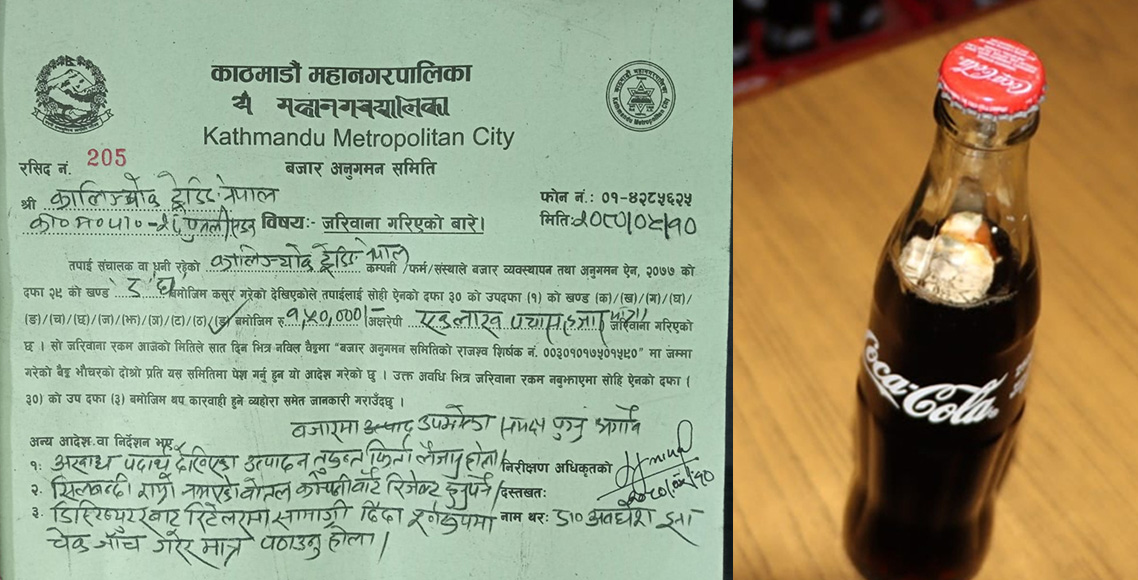 काठमाडौं महानगरपालिका
Kathmandu Metropolitan City
रसिद नं. 205
बजार अनुगमन समिति
श्री कालिञ्चोक ट्रेडिङ नेपाल
फोन नं.: ०१-४२८५६२५
का०म०पा०-२८ पुतलीसडक विषय:- जरिवाना गरिएको बारे।
मिति:२०८०/०८/१०
तपाई संचालक वा धनी रहेको कालिञ्चोक ट्रेडिङ नेपाल कम्पनी /फर्म/संस्थाले बजार व्यवस्थापन तथा अनुगमन ऐन, २०७७ को
दफा २९ को खण्ड बमोजिम कसुर गरेको देखिएकोले तपाईलाई सोही ऐनको दफा ३० को उपदफा (१) को खण्ड (क)/(ख)/(ग)/(घ)/
(ङ)/(च)/(छ)/(ज)/(झ)/(ञ)/(ट)/(ठ)/(ड) बमोजिम रु. १,५०,०००/- अक्षरेपी एकलाख पचास हजार मात्र।। जरिवाना गरिएको
छ । सो जरिवाना रकम आजको मितिले सात दिन भित्र नविल बैङ्कमा "बजार अनुगमन समितिको राजश्व शिर्षक नं. ००३०१०१७५०१५८०" मा जम्मा
गरेको बैङ्क भौचरको दोश्रो प्रति यस समितिमा पेश गर्नु हुन यो आदेश गरेको छु । उक्त अवधि भित्र जरिवाना रकम नबुझाएमा सोहि ऐनको दफा (
३०) को उप दफा (३) बमोजिम थप कारवाही हुने व्यहोरा समेत जानकारी गराउँदछु ।
बजारमा उत्पाद उपभोक्ता समक्ष पुग्नु अगावै
अन्य आदेश वा निर्देशन भए
१: अखाद्य पदार्थ देखिएका उत्पादन तुरुन्त फिर्ता लैजानु होला। निरीक्षण अधिकृतको
२. सिलबन्दी राम्रो नभएको बोतल कम्पनीबाट रिजेक्ट हुनुपर्ने। दस्तखत:
३. डिस्ट्रिब्युटरबाट रिटेलरमा सामाग्री दिंदा नाम थर: डा० अवधेश झा
चेक जाँच गरेर मात्र पठाउनु होला।
Coca-Cola
Coca-Cola